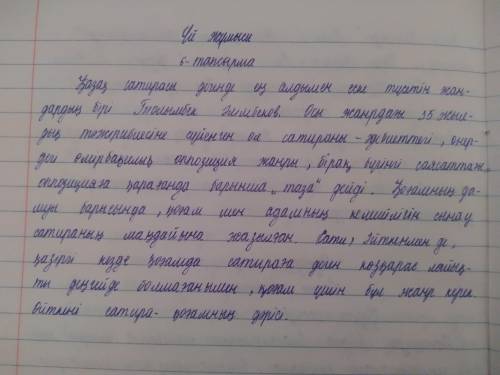 Үй жұмысы
6-тапсырма
Қазақ сатирасы дегенде ең алдымен еске түсетін жан-
дардың бірі Еркінбеков. Осы жанрдағы 35 жыл-
дық тәжірибесіне сүйенген ол сатираны - әдебиеттегі, өнер-
дегі оппозиция жанры, бірақ бүгінгі саясаттағы
оппозицияға қарағанда барынша „таза" дейді. Қоғамның да-
муы барысында, қоғам мен адамның кемшілігін сынау
сатираның маңдайына жазылған. Сөйтсе де,
қазіргі кезде қоғамда сатираға деген көзқарас лайық-
ты деңгейде болмағанымен, қоғам үшін бұл жанр керек.
Өйткені сатира - қоғамның дәрісі.